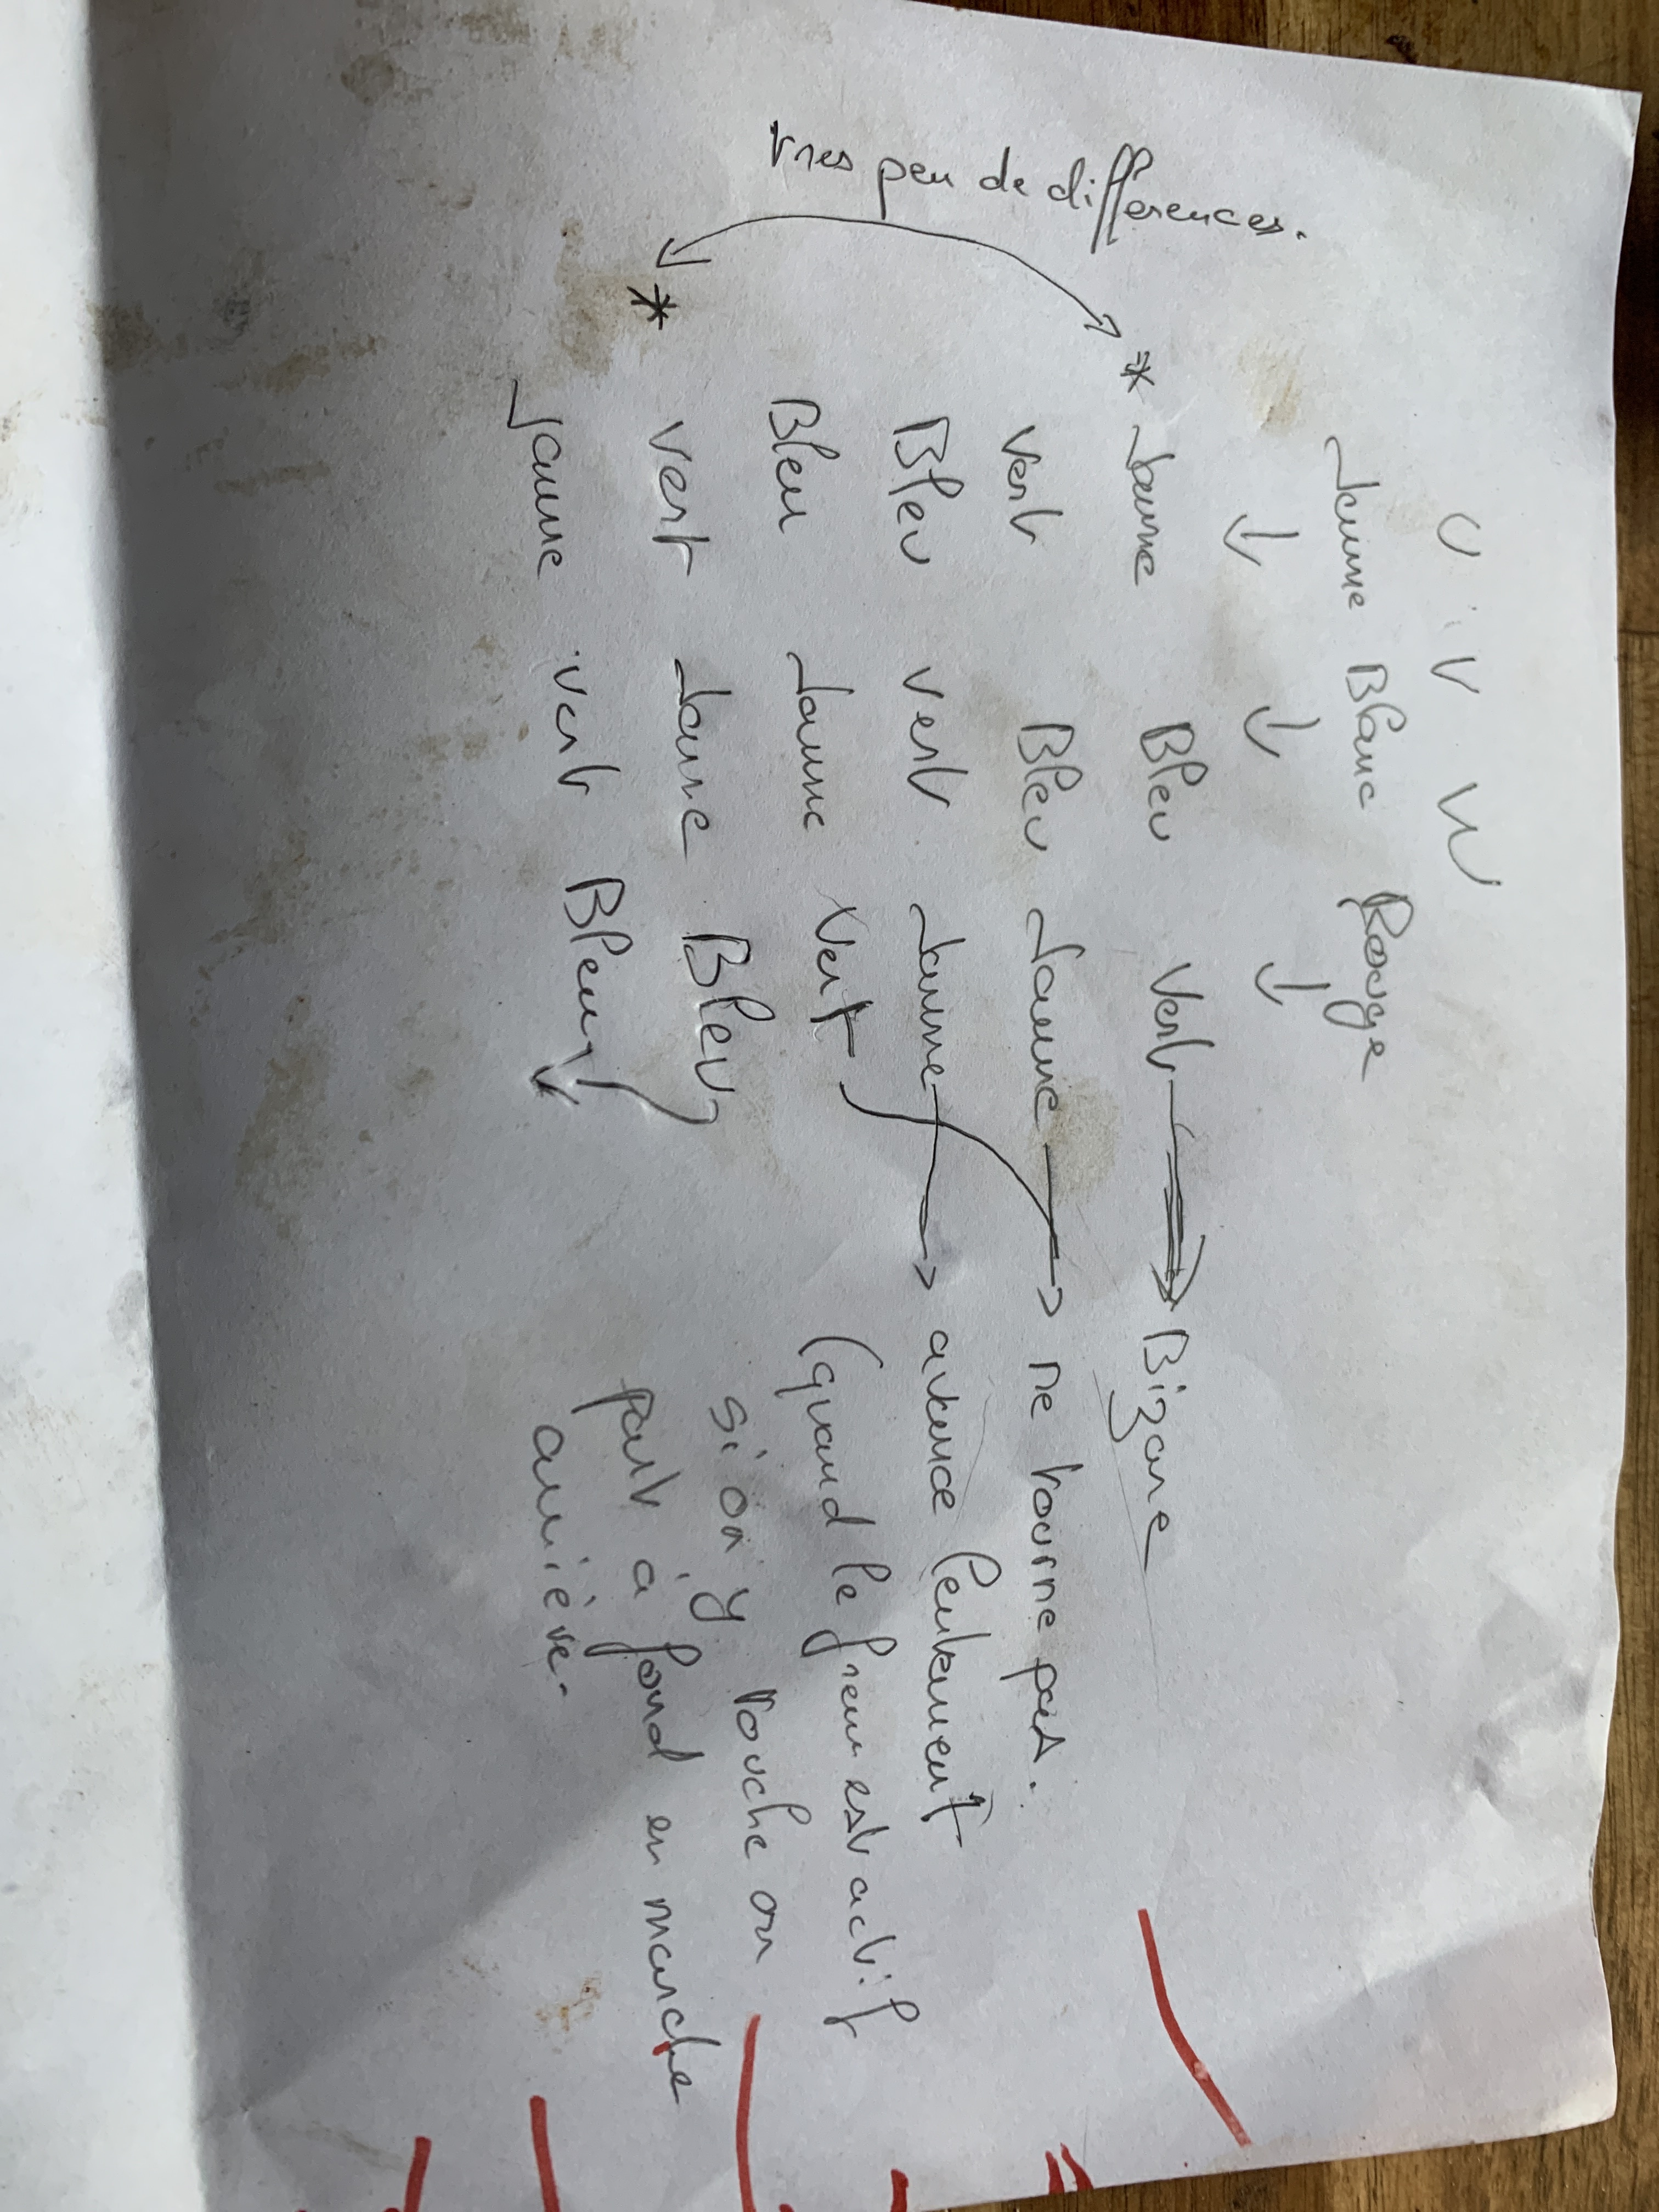 U V W
Jaune Blanc Rouge
↓ ↓ ↓
* Jaune Bleu Vert → Bizare
Vert Bleu Jaune → ne tourne pas.
Bleu vert Jaune → avance lentement
Bleu Jaune Vert
(quand le frein est actif
* Vert Jaune Bleu
si on y touche on
Jaune vert Bleu
part à fond en marche
arrière.
tres peu de differences.